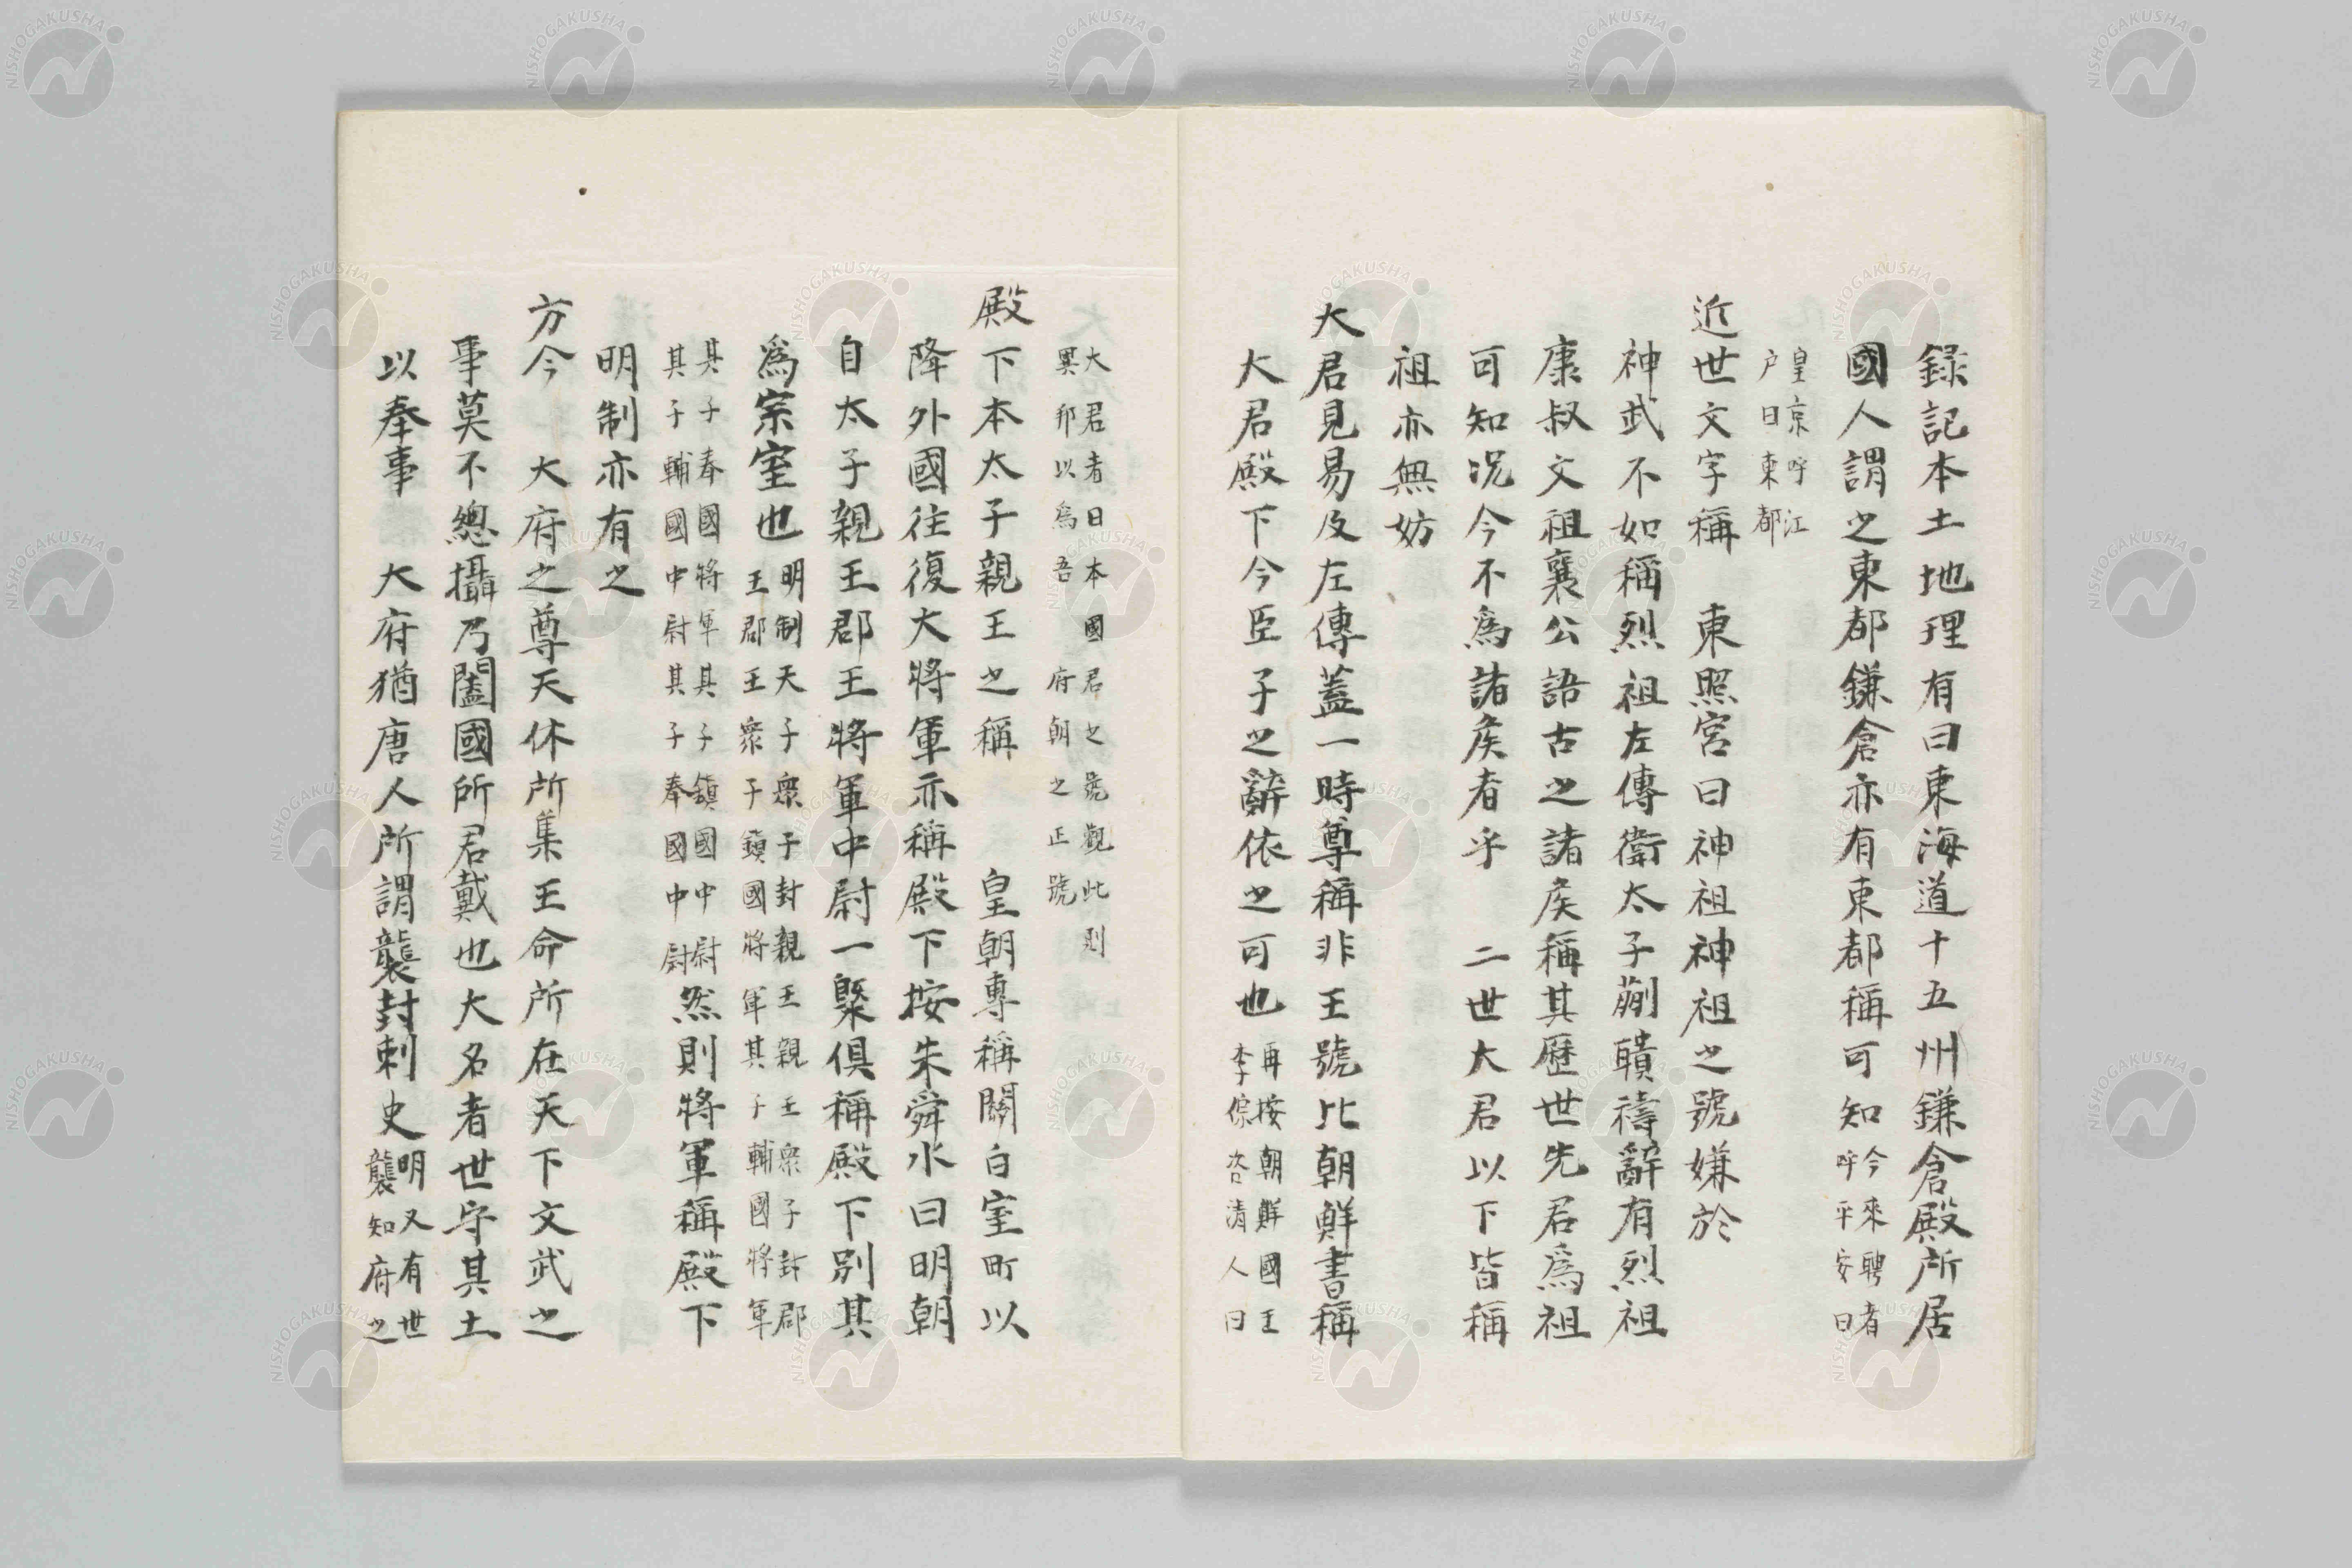 錄記本土地理有曰東海道十五州鎌倉殿所居
國人謂之東都鎌倉亦有東都稱可知今來聘者呼平安曰
皇京呼江戶曰東都
近世文字稱　東照宮曰神祖神祖之號嫌於
神武不如稱烈祖左傳衛太子蒯聵禱辭有烈祖
康叔文祖襄公語古之諸矦稱其歷世先君爲祖
可知況今不爲諸矦者乎　二世大君以下皆稱
祖亦無妨
大君見易及左傳蓋一時尊稱非王號比朝鮮書稱
大君殿下今臣子之辭依之可也再按朝鮮國王李倧咨清人曰
大君者日本國君之號觀此則異邦以爲吾　府朝之正號
殿下本太子親王之稱　皇朝專稱關白室町以
降外國往復大將軍亦稱殿下按朱舜水曰明朝
自太子親王郡王將軍中尉一槩俱稱殿下別其
爲宗室也明制天子衆子封親王親王衆子封郡王郡王衆子鎮國將軍其子輔國將軍
其子奉國將軍其子鎮國中尉其子輔國中尉其子奉國中尉然則將軍稱殿下
明制亦有之
方今　大府之尊天休所集王命所在天下文武之
事莫不總攝乃闔國所君戴也大名者世守其土
以奉事　大府猶唐人所謂襲封刺史明又有世襲知府之